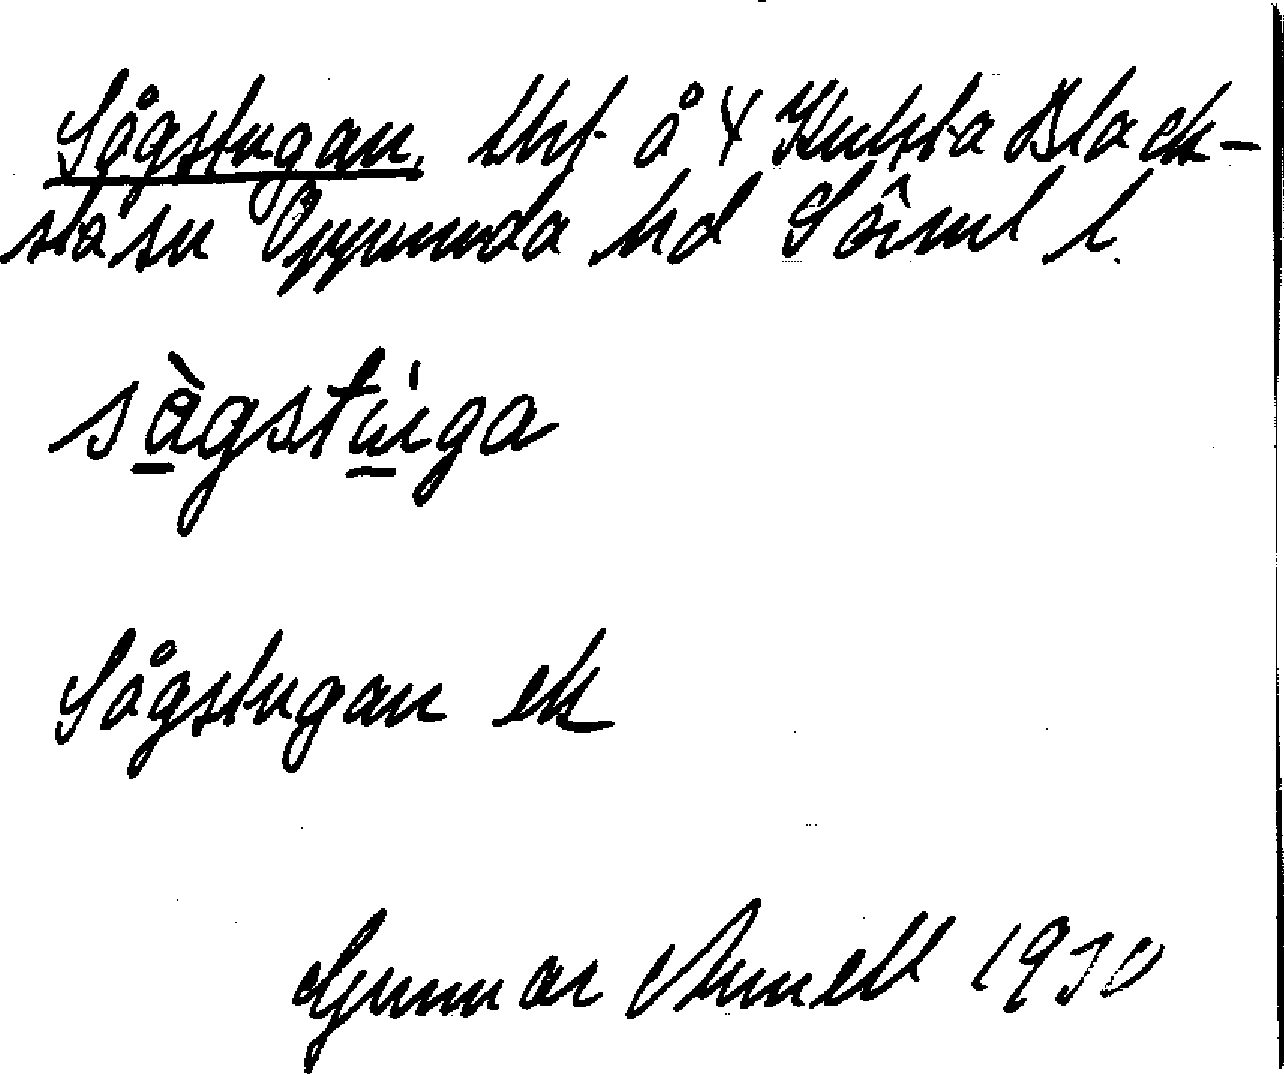 Sågstugan, tht å Y Kulsta Black-
sta sn Oppunda hd Sörml l.
sàgstúga
Sågstugan ek
Gunnar Arnell 1930